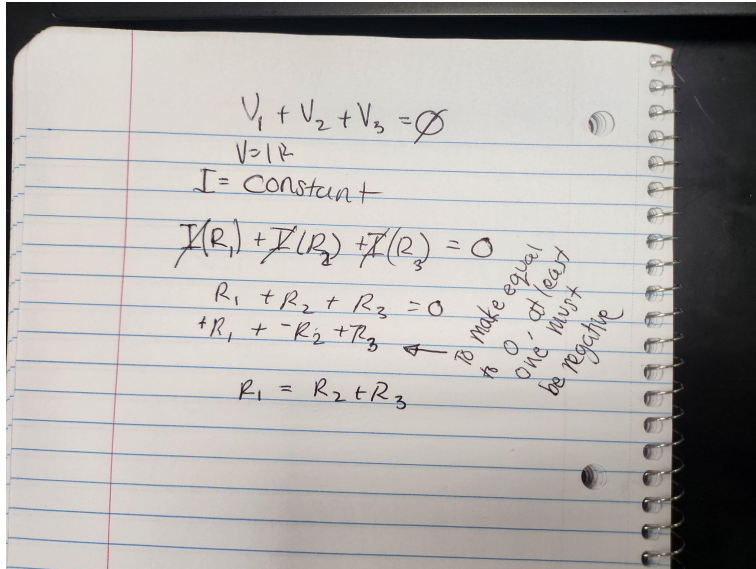 V₁ + V₂ + V₃ = ∅
V=IR
I = constant
I(R₁) + I(R₂) + I(R₃) = 0
R₁ + R₂ + R₃ = 0
+R₁ + -R₂ + -R₃ ←
To make equal
to 0, at least
one must
be negative
R₁ = R₂ + R₃